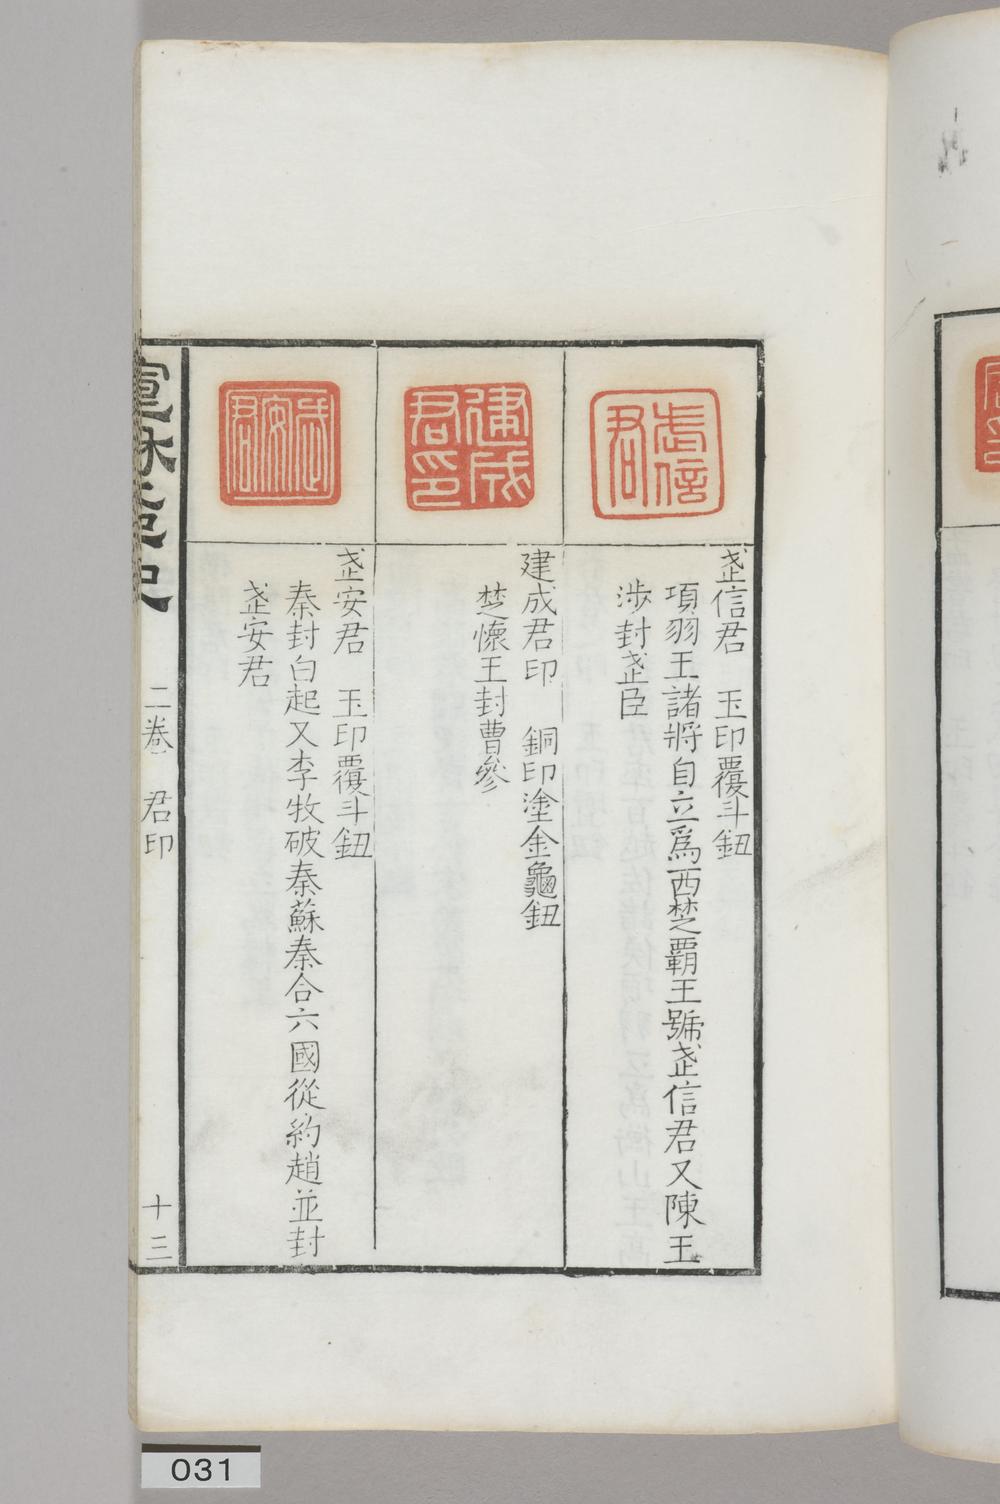 武信
君
武信君　玉印覆斗鈕
項羽王諸將自立爲西楚霸王號武信君又陳王
涉封武臣
建成
君印
建成君印　銅印塗金龜鈕
楚懷王封曹參
武安君
武安君　玉印覆斗鈕
秦封白起又李牧破秦蘇秦合六國從約趙並封
武安君
宣和
史
二卷　君印
十三
031